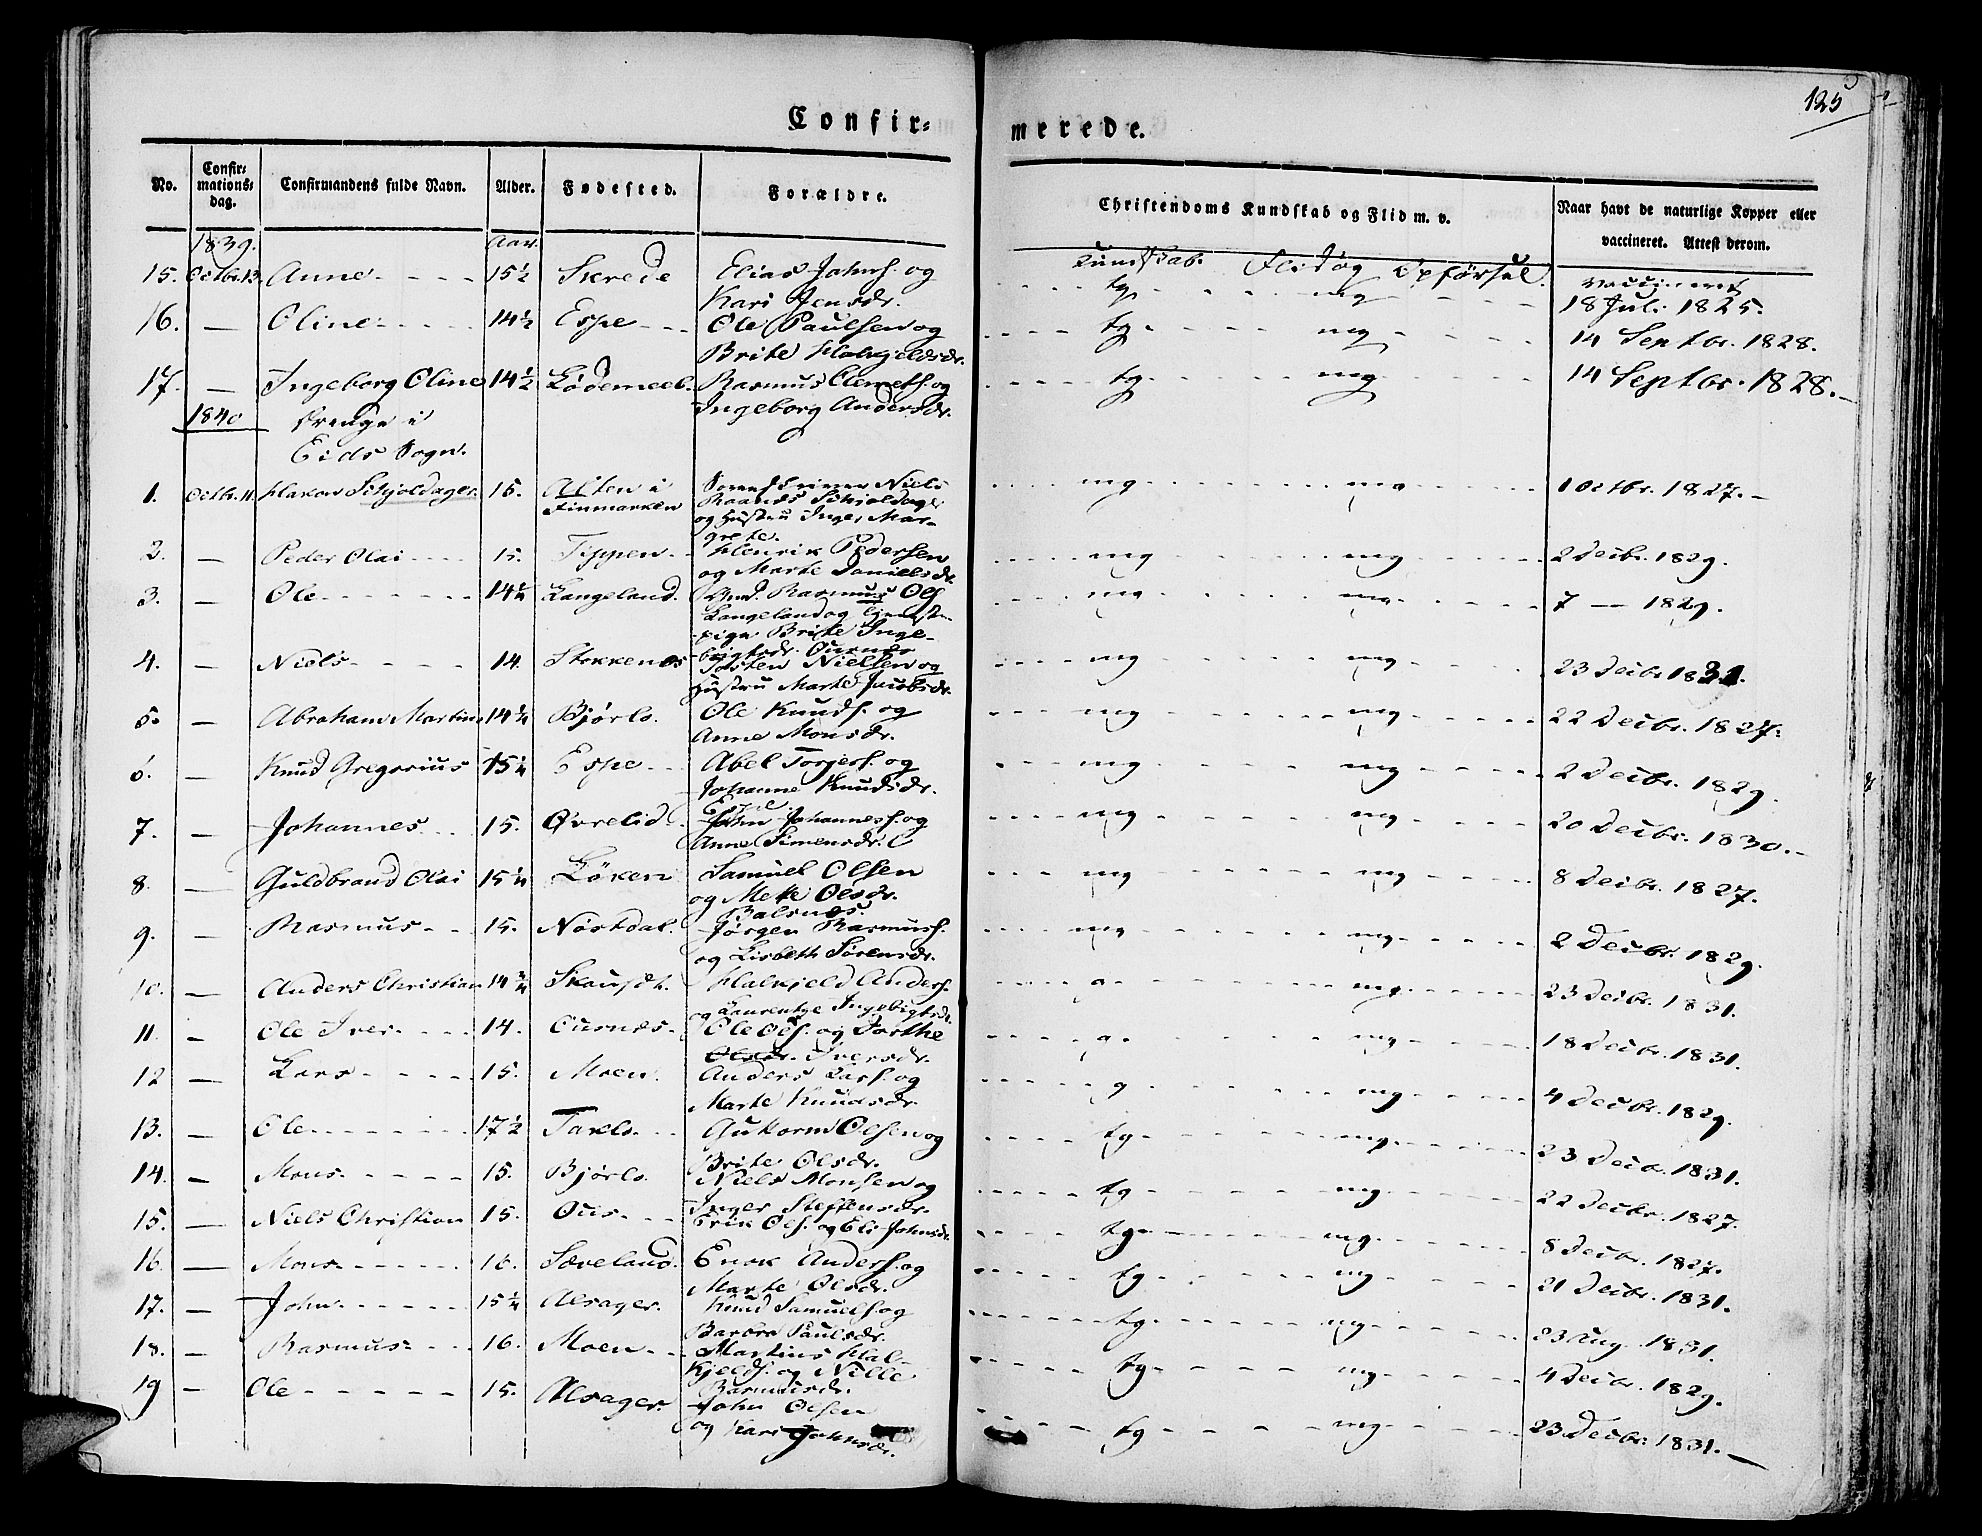 125
Confir= merede.
No. Confir=mations=dag. Confirmandens fulde Navn. Alder. Fødested. Forældre. Christendoms Kundskab og Flid m. v. Naar havt de naturlige Kopper eller vaccineret. Attest derom.
1839. Aar. Kundskab. Flid og Opførsel. vaccineret
15. Octbr. 13. Anne 15½ Skrede Elias Johns. og Kari Jensdr. tg mg 18 Juli 1825.
16. — Oline 14½ Espe Ole Paulsen og Brite Halkjeldsdr. tg mg 14 Septbr. 1828.
17. — Ingeborg Oline 14½ Lødemeel Rasmus Clemets. og Ingeborg Andersdr. tg mg 14 Septbr. 1828.
1840 Drenge i Eids Sogn.
1. Octbr. 11. Hakon Schjoldager 15. Alten i Finmarken Niels Schjoldager og Hustru Inger Margrete. mg mg 1 Octbr. 1827.
2. — Peder Olai 15. Tippen Henrik Pedersen og Marte Danielsdr. mg mg 2 Decbr. 1829.
3. — Ole 14¼ Langeland. Rasmus Ols. Langeland og Brite Ingebrigtsdr. Ournes mg mg 7 — 1829.
4. — Niels 14. Stokkenes Josten Nielsen og Hustru Marte Jacobsdr. mg mg 23 Decbr 1831.
5. — Abraham Martin 14¼ Bjørlo. Ole Knuds. og Anne Monsdr. mg mg 22 Decbr. 1827.
6. — Knud Gregorius 15¼ Espe Abel Torjers. og Johanne Knudsdr. Espe. mg mg 2 Decbr. 1829.
7. — Johannes 15. Øvrelid John Johanness. og Anne Simensdr. mg mg 20 Decbr. 1830.
8. — Guldbrand Olai 15¼ Løken Samuel Olsen og Mette Olsdr. Balsnes. mg mg 8 Decbr. 1827.
9. — Rasmus 15. Nørstdal. Jørgen Rasmuss. og Lisbeth Sørensdr. mg mg 2 Decbr. 1829.
10. — Anders Christian 14¾ Halkjeld Anders. og Laurentze Ingebrigtsdr. g mg 23 Decbr. 1831.
11. — Ole Iver 14. Ournes Ole Ols. og Dorthe Olsdr. Iversdr. g. mg 18 Decbr. 1831.
12 — Lars 15. Moen. Anders Lars. og Marte Knudsdr. g mg 4 Decbr. 1829.
13. — Ole 17½ Guttorm Olsen og Brite Olsdr. tg mg 23 Decbr. 1831.
14. — Mons 15. Bjørlo. Niels Monsen og Inger Steffensdr. tg mg 22 Decbr. 1827.
15. — Niels Christian 15. Ous Erik Ols. og Eli Johnsdr. tg mg 8 Decbr. 1827.
16. — Mons 16. Sæveland. Enok Anders. og Marte Olsdr. tg mg 21 Decbr. 1831.
17. — John 15¼ Alsager. Knud Samuels. og Barbra Paulsdr. tg mg 23 Aug. 1831.
18. — Rasmus 16. Moen Martius Halkjelds. og Nille Rasmusdr. tg mg 4 Decbr. 1829.
19 — Ole 15. Alsager. John Olsen og Kari Johnsdr. tg mg 23 Decbr. 1831.